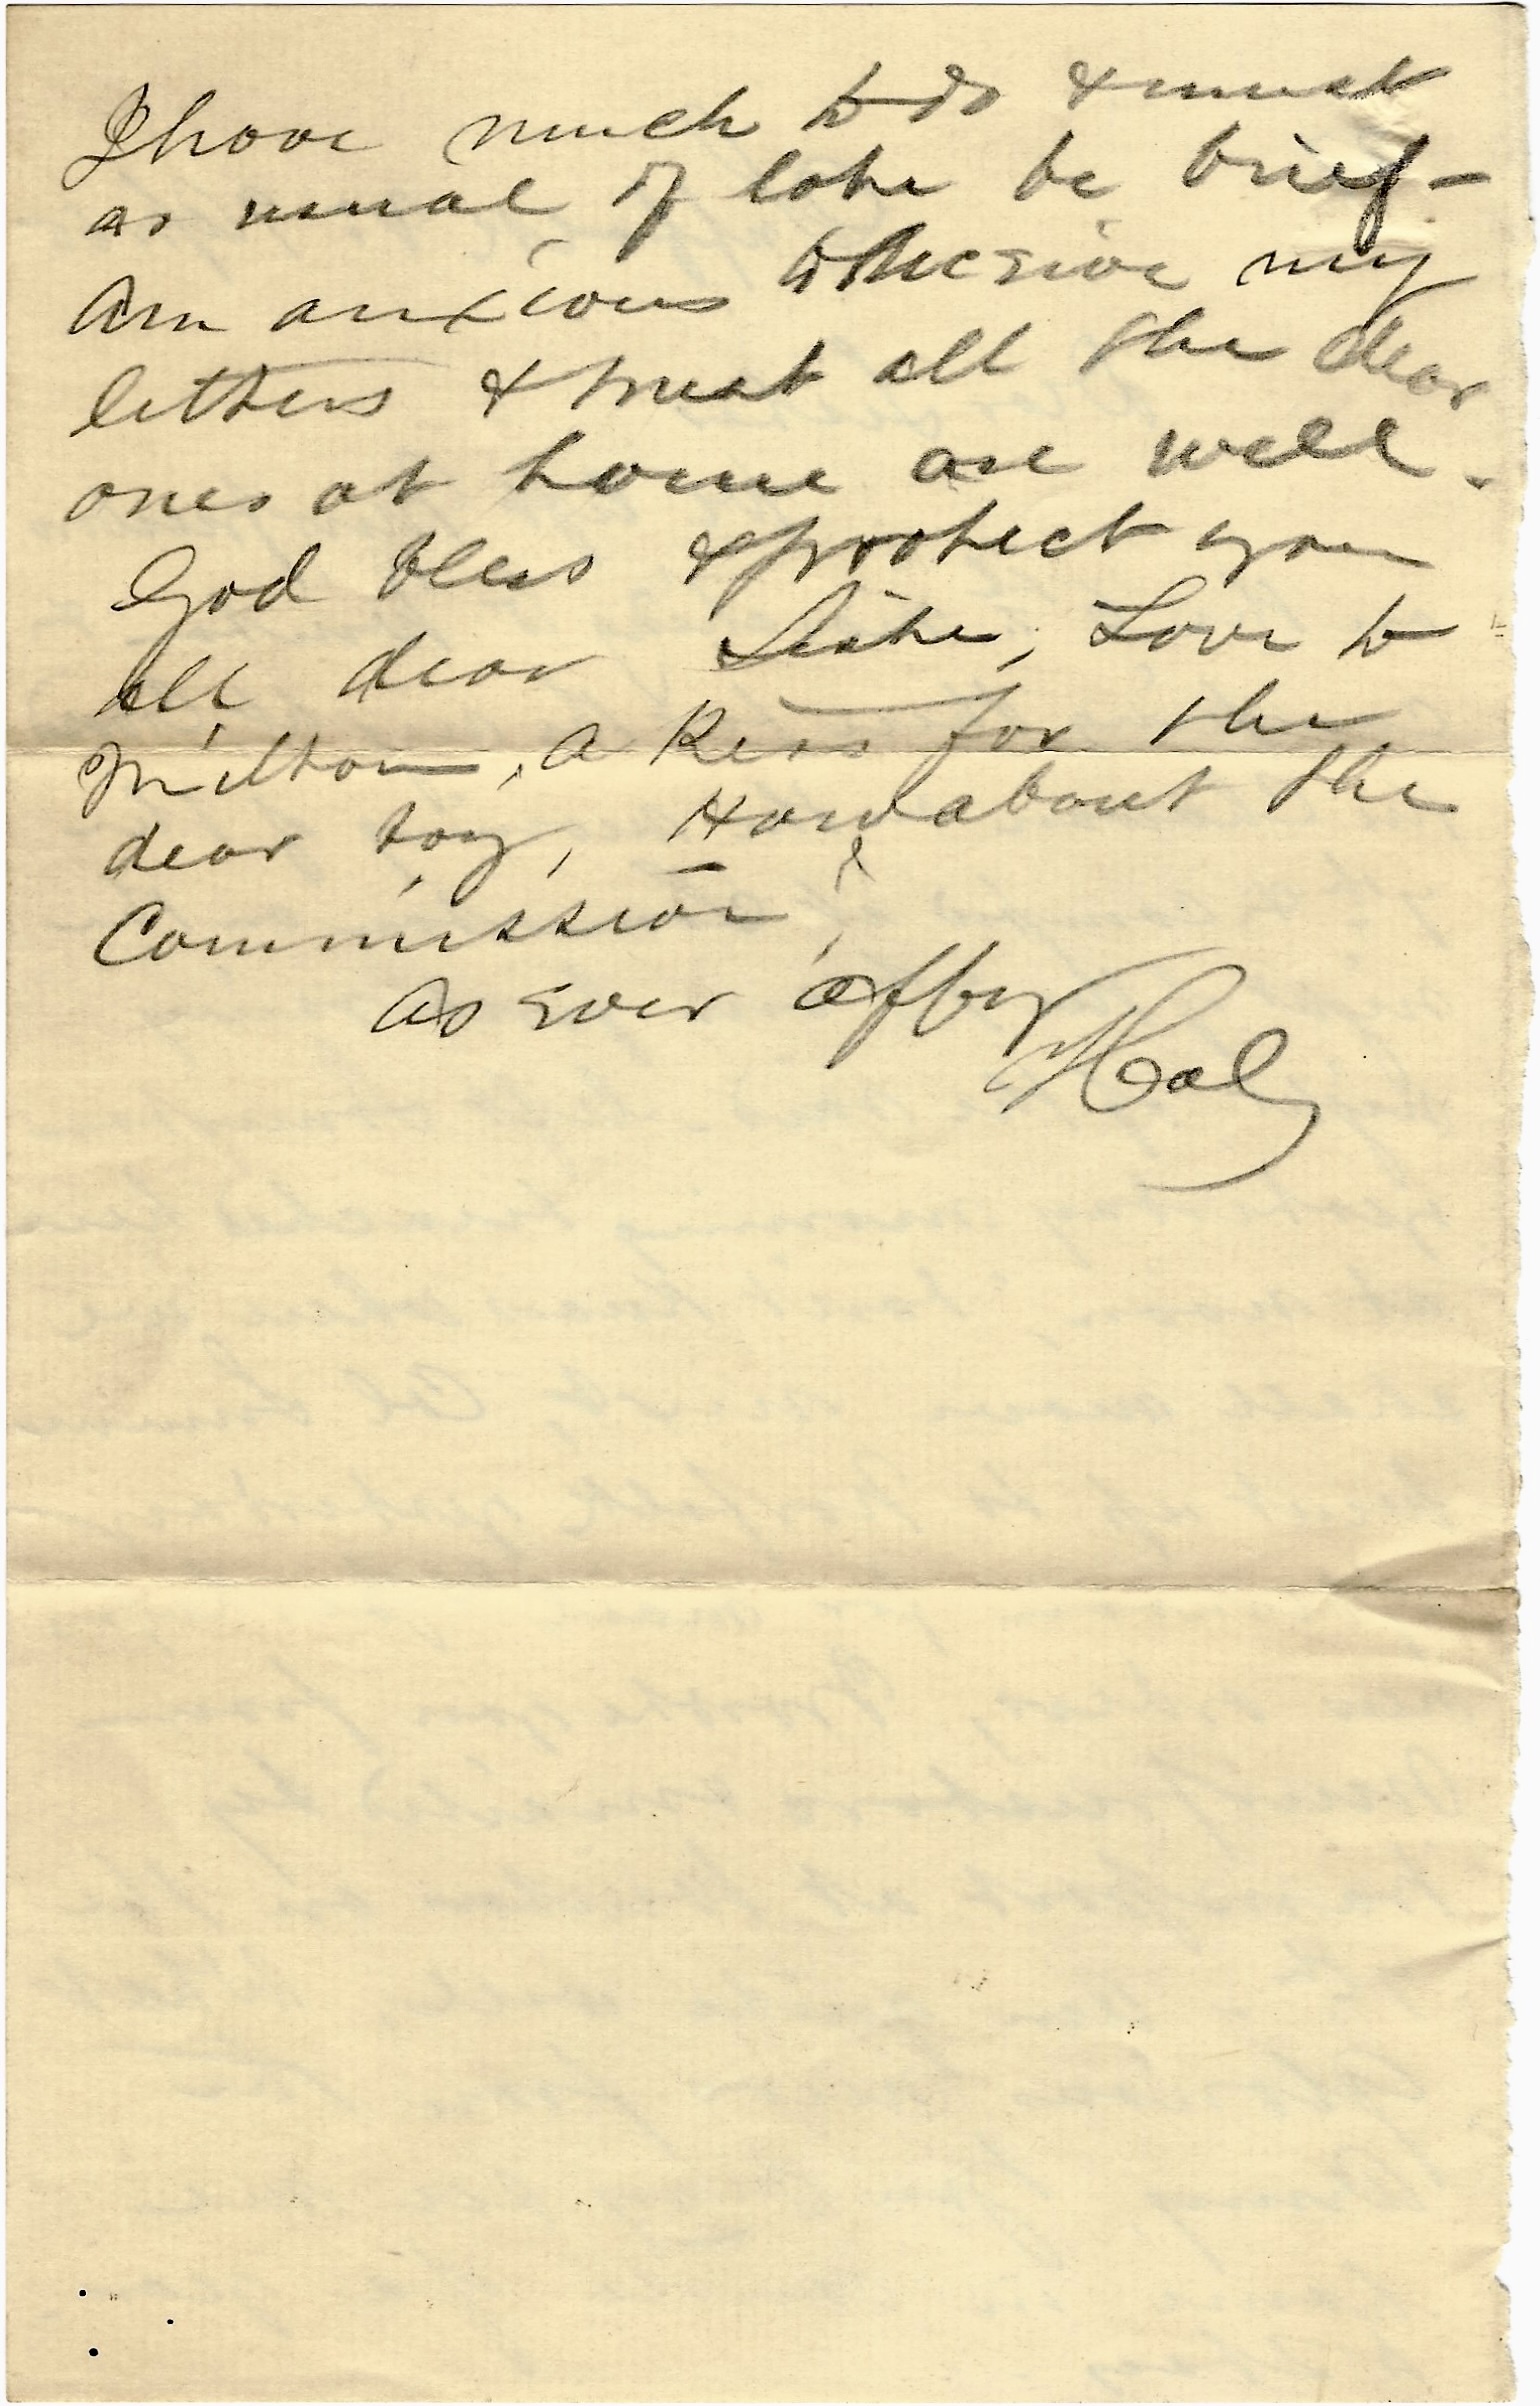 I have much to do & must
as usual of late be brief –
Am anxious to receive my
letters & trust all the dear
ones at home are well.
God bless & protect you
all dear Sister, Love to
Milton, a Kiss for the
dear boy, How about the
Commission?
As Ever affty
Hal